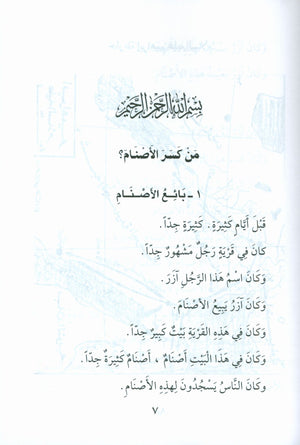 بِسْمِ اللهِ الرَّحْمٰنِ الرَّحِيْمِ
مَنْ كَسَرَ الأَصْنَامَ؟
١ - بَائِعُ الأَصْنَامِ
قَبْلَ أَيَّامٍ كَثِيْرَةٍ. كَثِيْرَةٍ جِدّاً.
كَانَ فِي قَرْيَةٍ رَجُلٌ مَشْهُورٌ جِدّاً.
وَكَانَ اسْمُ هَذَا الرَّجُلِ آزَرَ.
وَكَانَ آزَرُ يَبِيعُ الأَصْنَامَ.
وَكَانَ فِي هَذِهِ القَرْيَةِ بَيْتٌ كَبِيرٌ جِدّاً.
وَكَانَ فِي هَذَا الْبَيْتِ أَصْنَامٌ ، أَصْنَامٌ كَثِيرَةٌ جِدّاً.
وَكَانَ النَّاسُ يَسْجُدُونَ لِهذِهِ الأَصْنَامِ.
٧